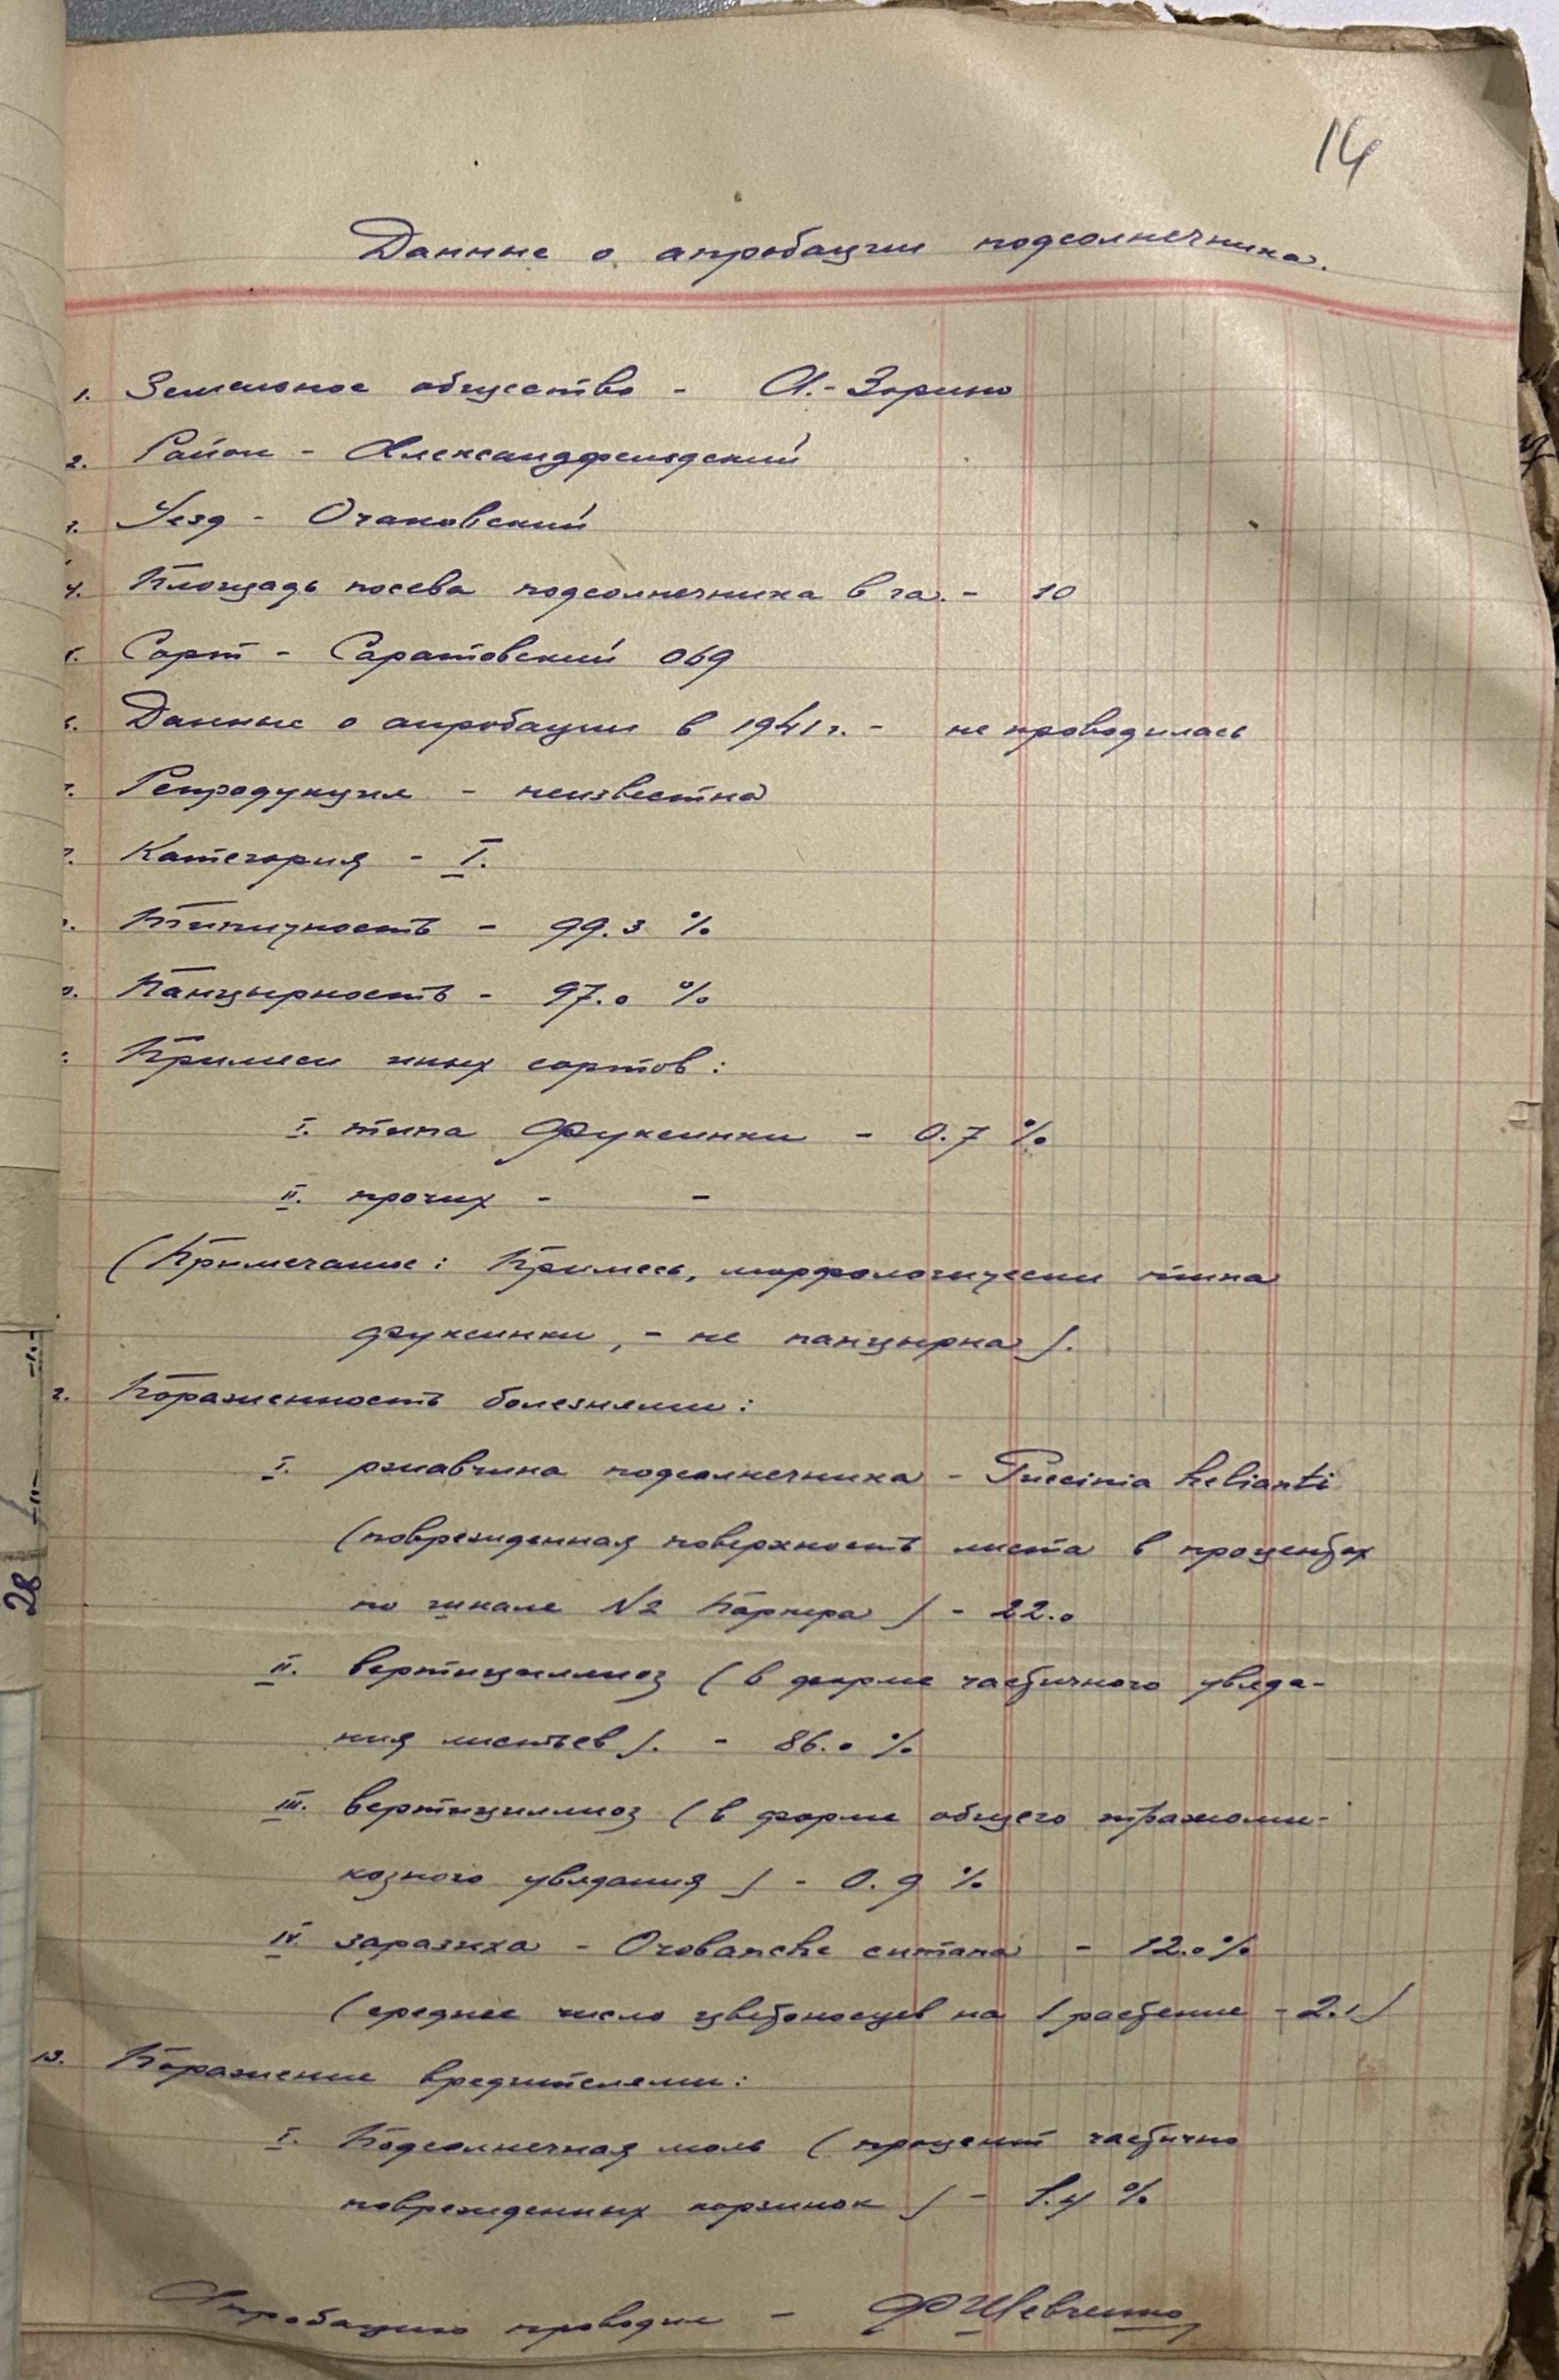 14
Данные о апробации подсолнечника.
1. Земельное общество - А.-Зорино
2. Район - Александфельдский
3. Уезд - Очаковский
4. Площадь посева подсолнечника в га. - 10
5. Сорт - Саратовский 069
6. Данные о апробации в 1941 г. - не проводилась
7. Репродукция - неизвестна
Категория - I.
Типичность - 99.3 %
Панцырность - 97.0 %
Примеси иных сортов:
I. типа Фуксинки - 0.7 %
II. прочих - -
(Примечание: Примесь, морфологически типа
фуксинки, - не панцырна).
2. Пораженность болезнями:
I. ржавчина подсолнечника - Puccinia helianti
(поврежденная поверхность листа в процентах
по шкале №2 ) - 22.0
II. вертициллиоз (в форме частичного увяда-
ния листьев). - 86.0 %
III. вертициллиоз (в форме общего трахеоми-
козного увядания) - 0.9 %
IV. заразиха - Orobanche cumana - 12.0 %
(среднее число цветоносцев на 1 растение - 2.1)
13. Поражение вредителями:
I. Подсолнечная моль (процент частично
поврежденных корзинок) - 1.4 %
Апробацию проводил - Ф Шевченко
28